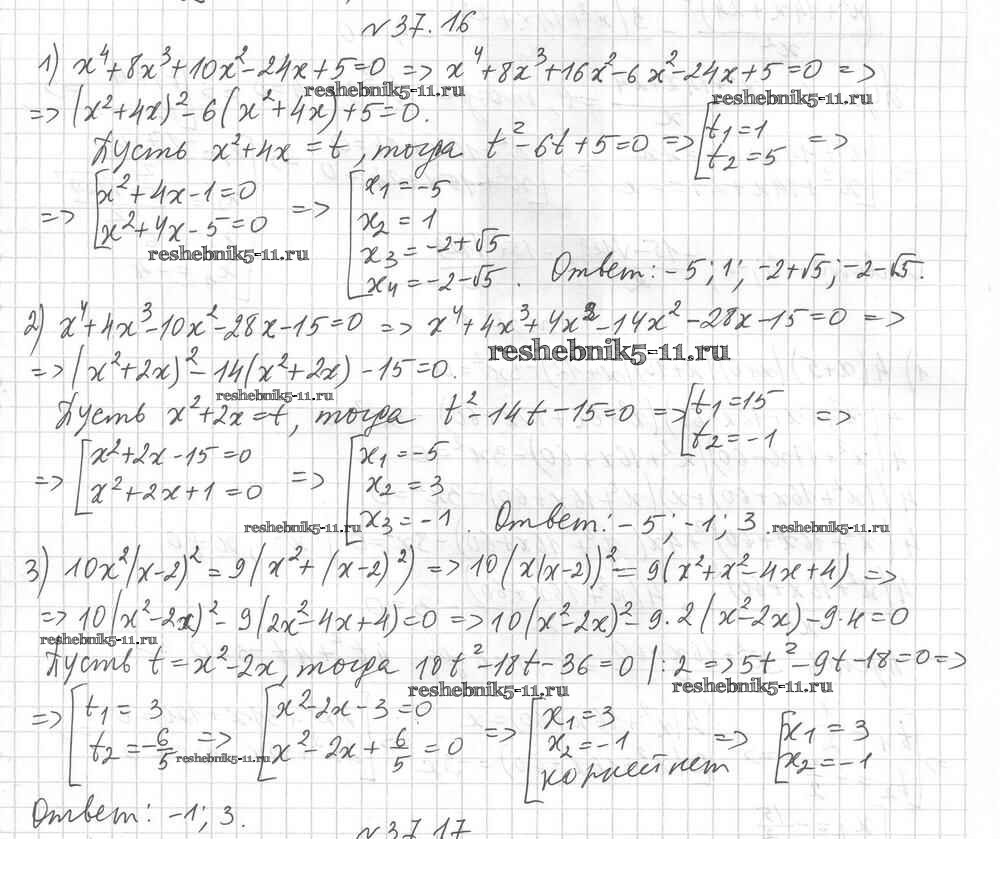 №37.16
1) x⁴+8x³+10x²-24x+5=0 => x⁴+8x³+16x²-6x²-24x+5=0 =>
reshebnik5-11.ru reshebnik5-11.ru
=> (x²+4x)²-6(x²+4x)+5=0.
Пусть x²+4x=t, тогда t²-6t+5=0 => [t₁=1 t₂=5 =>
=> [x²+4x-1=0 x²+4x-5=0 => [x₁=-5 x₂=1 x₃=-2+√5 x₄=-2-√5. Ответ: -5; 1; -2+√5; -2-√5.
reshebnik5-11.ru
2) x⁴+4x³-10x²-28x-15=0 => x⁴+4x³+4x²-14x²-28x-15=0 =>
reshebnik5-11.ru
=> (x²+2x)²-14(x²+2x)-15=0.
reshebnik5-11.ru
Пусть x²+2x=t, тогда t²-14t-15=0 => [t₁=15 t₂=-1 =>
=> [x²+2x-15=0 x²+2x+1=0 => [x₁=-5 x₂=3 x₃=-1. Ответ: -5; -1; 3.
reshebnik5-11.ru reshebnik5-11.ru
3) 10x²(x-2)²=9(x²+(x-2)²) => 10(x(x-2))²=9(x²+x²-4x+4) =>
=> 10(x²-2x)²-9(2x²-4x+4)=0 => 10(x²-2x)²-9·2(x²-2x)-9·4=0
reshebnik5-11.ru
Пусть t=x²-2x, тогда 10t²-18t-36=0 |:2 => 5t²-9t-18=0 =>
reshebnik5-11.ru reshebnik5-11.ru
=> [t₁=3 t₂=-6/5 => [x²-2x-3=0 x²-2x+6/5=0 => [x₁=3 x₂=-1 корней нет => [x₁=3 x₂=-1
reshebnik5-11.ru
Ответ: -1; 3.
№37.17